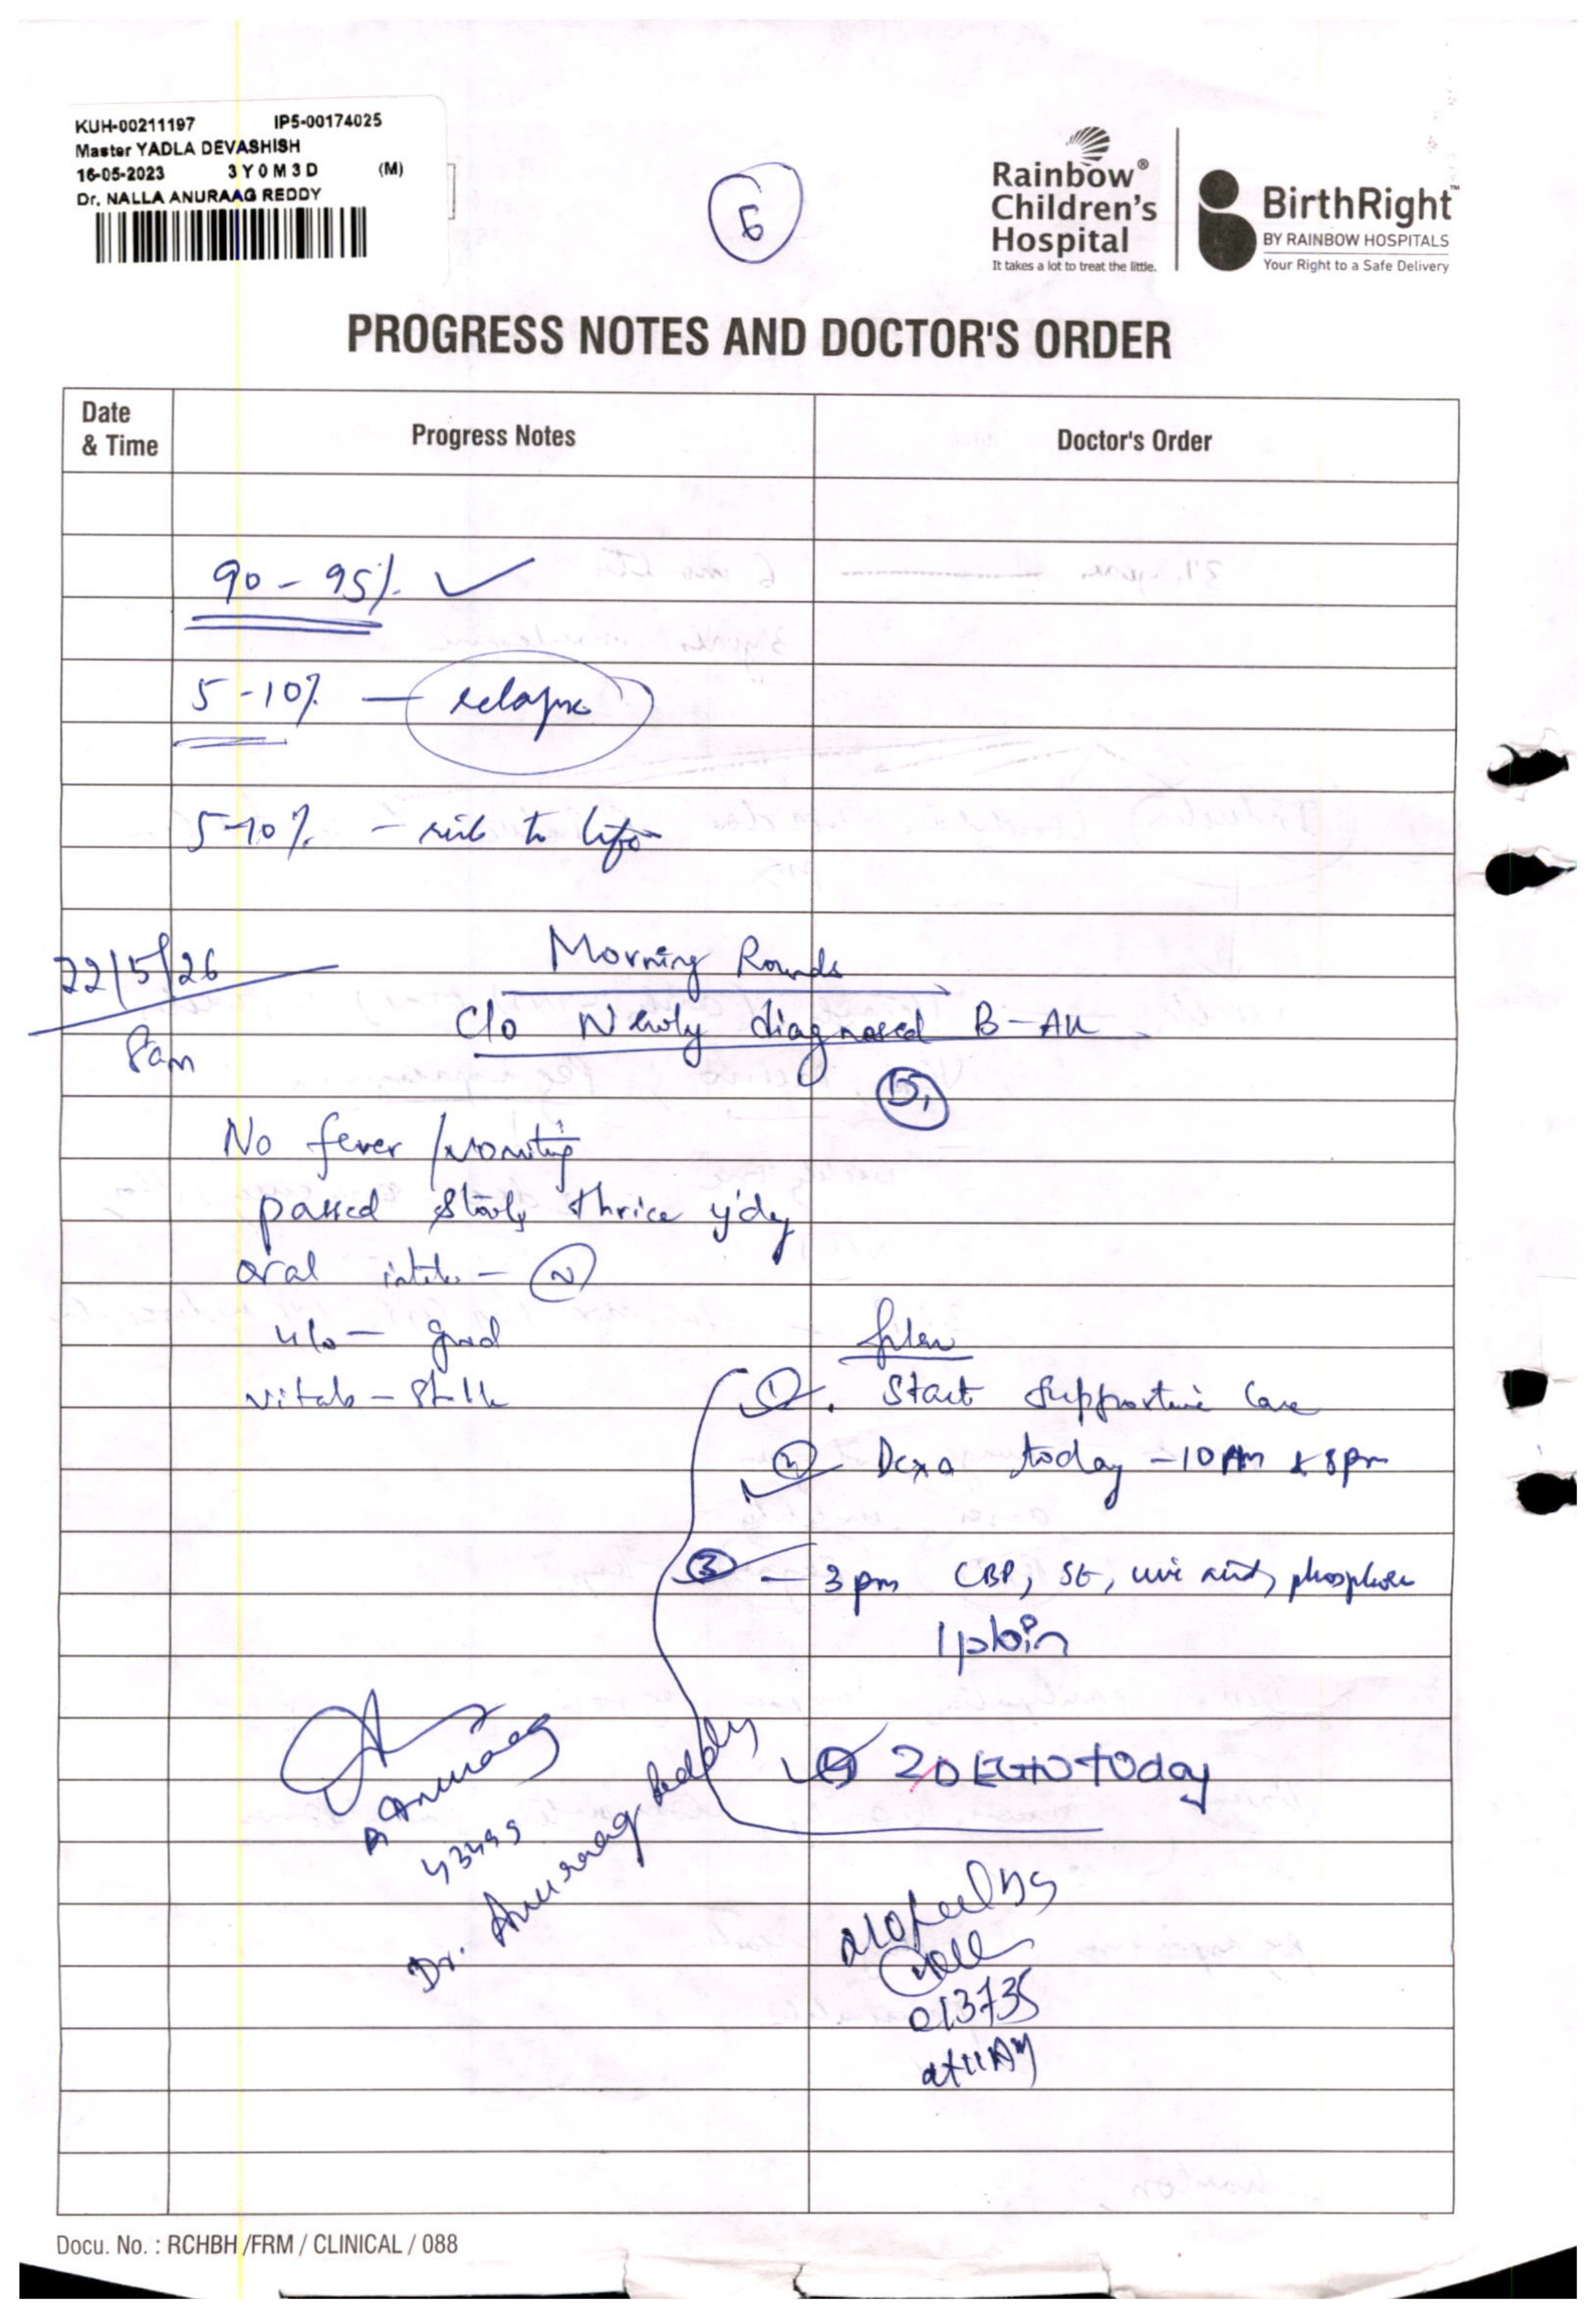 KUH-00211197 IP5-00174025
Master YADLA DEVASHISH
16-05-2023 3Y0M3D (M)
Dr. NALLA ANURAAG REDDY
Rainbow®
Children's
Hospital
It takes a lot to treat the little.
BirthRight™
BY RAINBOW HOSPITALS
Your Right to a Safe Delivery
PROGRESS NOTES AND DOCTOR'S ORDER
Date & Time Progress Notes Doctor's Order
90 - 95% ✓
5 - 10% — relapse
5-10% — risk to life
22/5/26 Morning Rounds
8am C/o Newly diagnosed B-ALL
D1
No fever / vomiting
passed stools thrice y'dy
oral intake - N
u/o — good
vitals - stable
plan
1. Start supportive care
2 Dexa today - 10 AM & 8pm
3 - 3 pm CBP, SE, uric acid, phosphorus
4 2D ECHO today
Anuraag
43499
Dr. Anuraag Reddy
013735
at 11 AM
Docu. No. : RCHBH /FRM / CLINICAL / 088